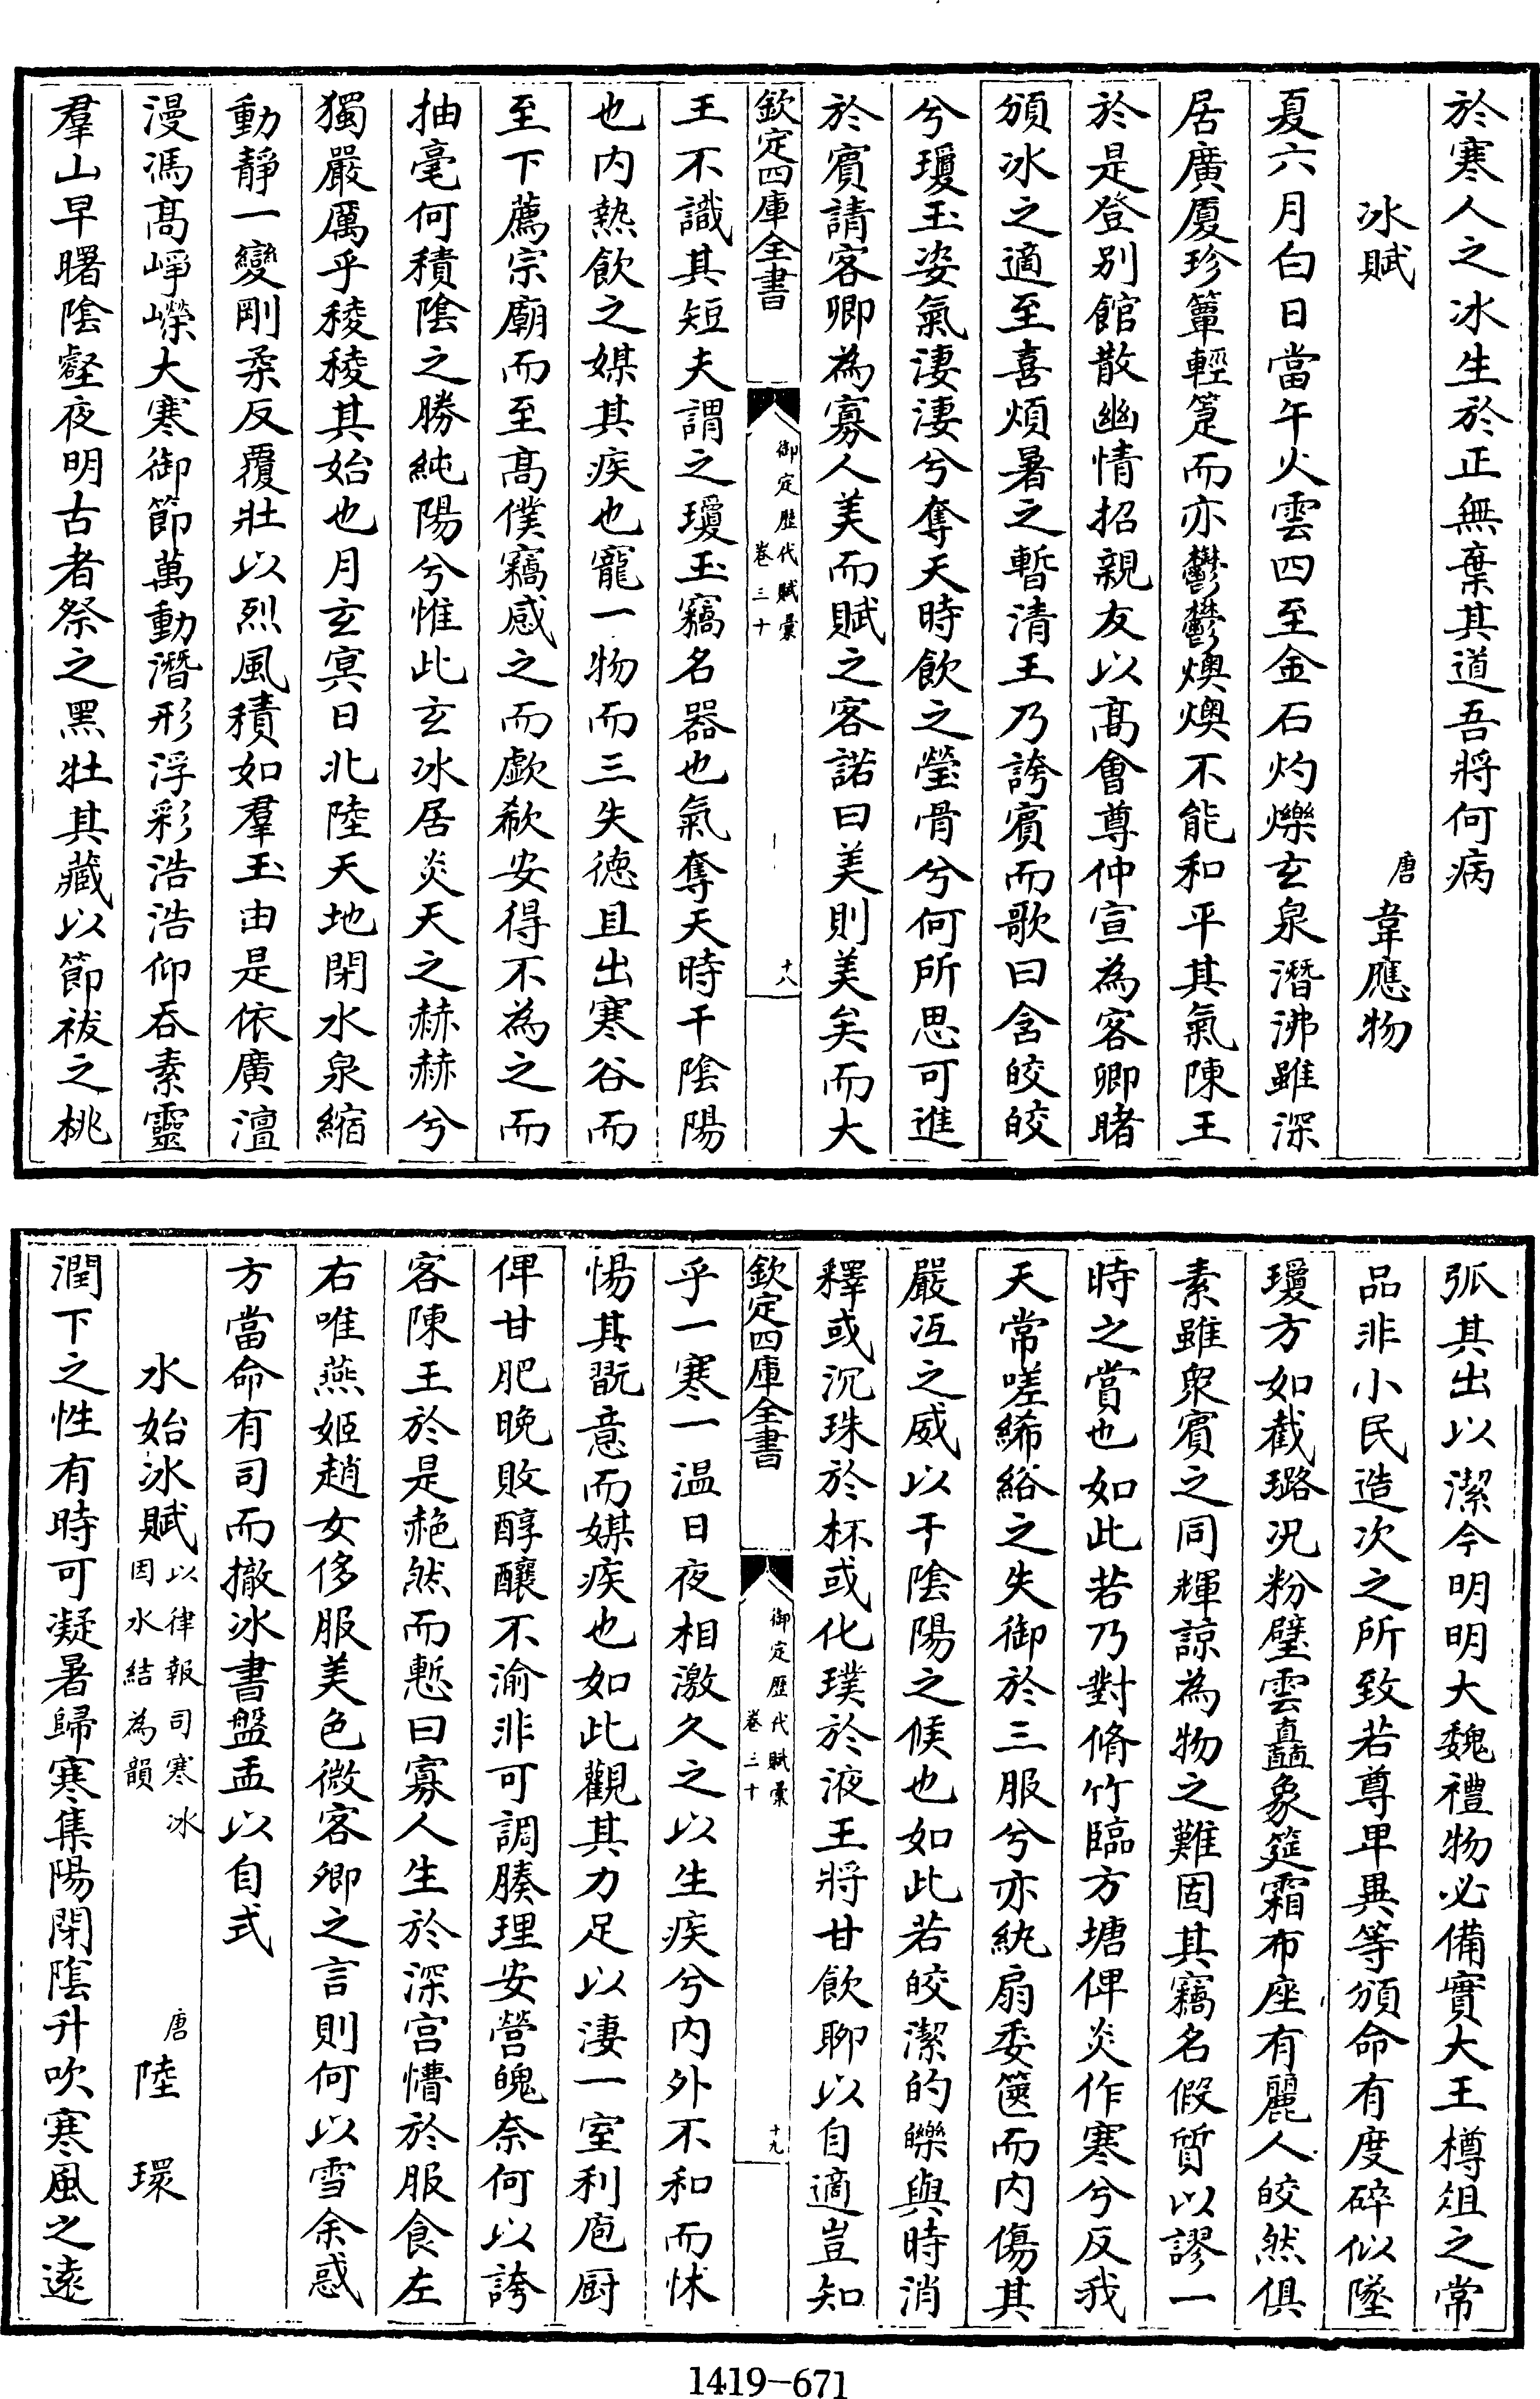 於寒人之冰生於正無棄其道吾將何病
冰賦
唐韋應物
夏六月白日當午火雲四至金石灼爍玄泉潛沸雖深
居廣厦珍簟輕箑而亦鬱鬱燠燠不能和平其氣陳王
於是登別館散幽情招親友以髙會尊仲宣為客卿睹
頒冰之適至喜煩暑之暫清王乃誇賓而歌曰含皎皎
兮瓊玉姿氣淒淒兮奪天時飲之瑩骨兮何所思可進
於賓請客卿為寡人美而賦之客諾曰美則美矣而大
欽定四庫全書
御定歴代賦彙
卷三十
十八
王不識其短夫謂之瓊玉竊名器也氣奪天時干陰陽
也内熱飲之媒其疾也寵一物而三失徳且出寒谷而
至下薦宗廟而至髙僕竊感之而歔欷安得不為之而
抽毫何積陰之勝純陽兮惟此玄冰居炎天之赫赫兮
獨嚴厲乎稜稜其始也月玄冥日北陸天地閉水泉縮
動靜一變剛柔反覆壯以烈風積如羣玉由是依廣澶
漫馮髙崢嶸大寒御節萬動潛形浮彩浩浩仰吞素靈
羣山早曙陰壑夜明古者祭之黑牡其藏以節祓之桃
弧其出以潔今明明大魏禮物必備實大王樽俎之常
品非小民造次之所致若尊卑異等頒命有度碎似墜
瓊方如截璐况粉壁雲矗象筵霜布座有麗人皎然俱
素雖衆賓之同輝諒為物之難固其竊名假質以謬一
時之賞也如此若乃對脩竹臨方塘俾炎作寒兮反我
天常嗟絺綌之失御於三服兮亦紈扇委篋而内傷其
嚴冱之威以干陰陽之候也如此若皎潔的皪與時消
釋或沉珠於杯或化璞於液王將甘飲聊以自適豈知
欽定四庫全書
御定歴代賦彙
卷三十
十九
乎一寒一温日夜相激久之以生疾兮内外不和而怵
惕其翫意而媒疾也如此觀其力足以淒一室利庖厨
俾甘肥晚敗醇釀不渝非可調腠理安營魄奈何以誇
客陳王於是赩然而慙曰寡人生於深宫懵於服食左
右唯燕姬趙女侈服美色微客卿之言則何以雪余惑
方當命有司而撤冰書盤盂以自式
水始冰賦以律報司寒冰因水結為韻
唐陸環
潤下之性有時可凝暑歸寒集陽閉隂升吹寒風之遠
1419-671